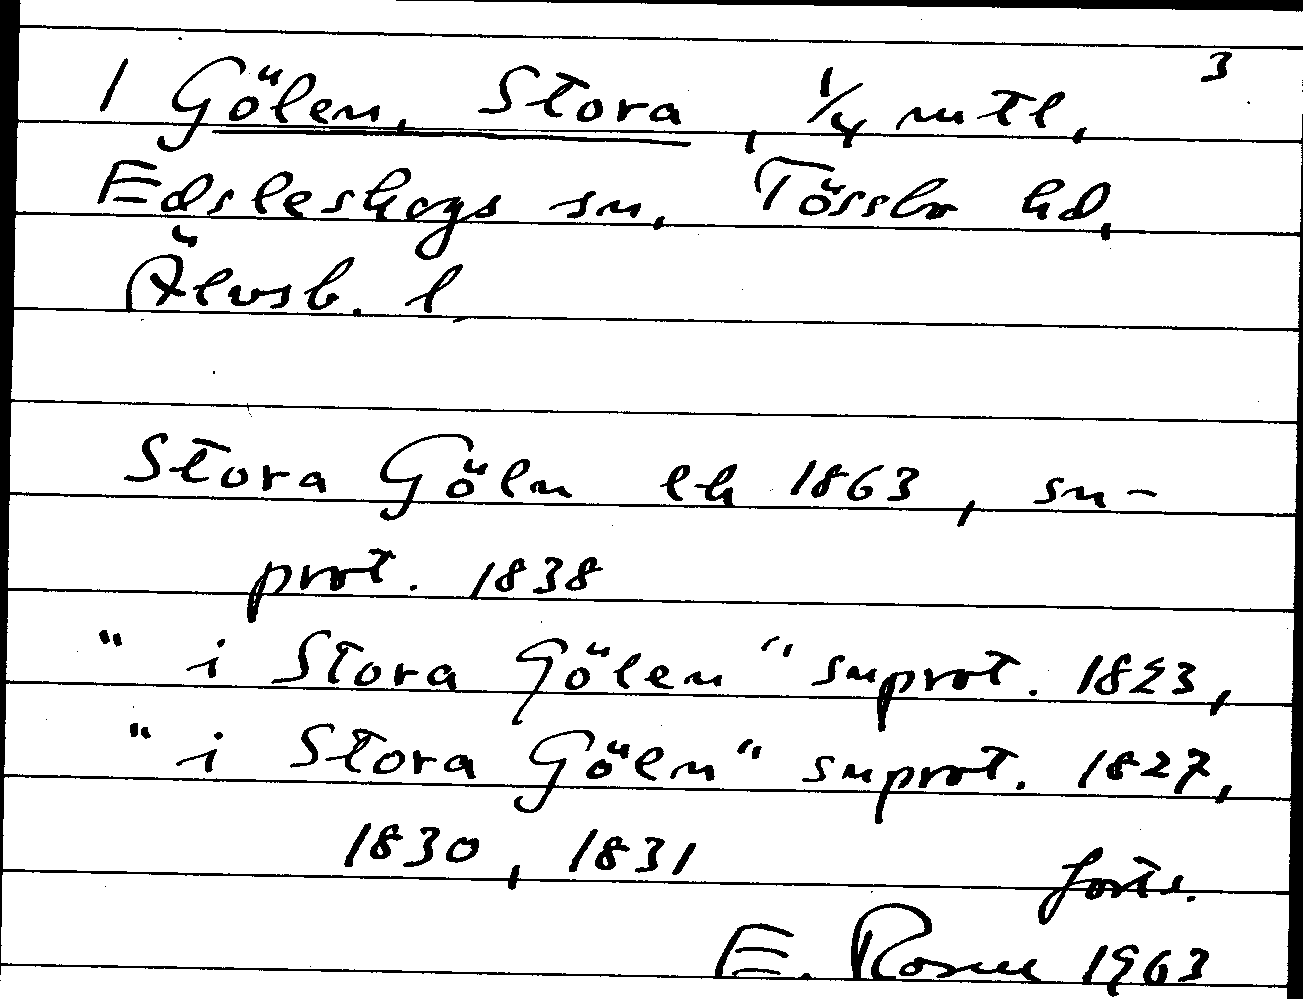 1 Gölen, Stora, 1/4 mtl, 3
Edsleskogs sn, Tössbo hd,
Älvsb. l
Stora Göln ek 1863, sn-
prot. 1838
" i Stora Gölen" snprot. 1823,
" i Stora Göln" snprot. 1827,
1830, 1831
forts.
E. Rosne 1963